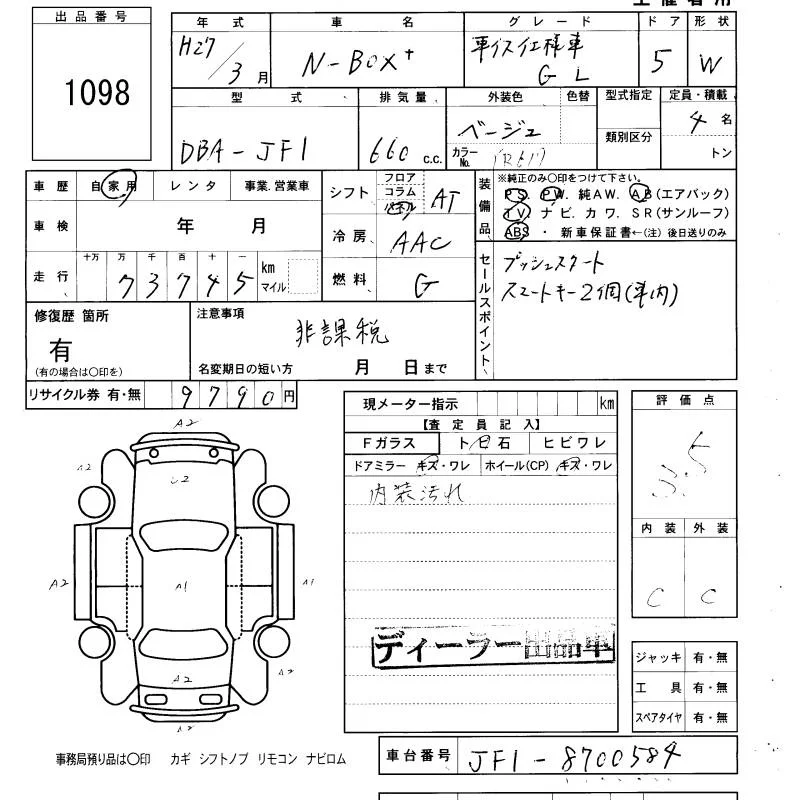 出品番号
1098
年式 車名 グレード ドア 形状
H27/3月 N-BOX+ 車イス仕様車 GL 5 W
型式 排気量 外装色 色替 型式指定 定員・積載
DBA-JF1 660 c.c. ベージュ 類別区分 4名
カラーNo. トン
車歴 自家用 レンタ 事業.営業車
シフト フロア コラム パネル AT
装備品 ※純正のみ〇印をつけて下さい。
PS. PW. 純AW. AB(エアバック)
TV. ナビ. カワ. SR(サンルーフ)
ABS ・ 新車保証書←(注) 後日送りのみ
車検 年 月
冷房 AAC
走行 十万 万 千 百 十 一
73745 km マイル
燃料 G
セールスポイント
プッシュスタート
スマートキー2個(車内)
修復歴 箇所
有
(有の場合は〇印を)
注意事項
非課税
名変期日の短い方 月 日まで
リサイクル券 有・無 9790円
現メーター指示 km
【査定員記入】
Fガラス トビ石 ヒビワレ
ドアミラー キズ・ワレ ホイール(CP) キズ・ワレ
内装汚れ
評価点
3.5
内装 外装
C C
A2
A2
A2
A1
A1
A2
ディーラー出品車
ジャッキ 有・無
工具 有・無
スペアタイヤ 有・無
事務局預り品は〇印 カギ シフトノブ リモコン ナビロム
車台番号 JF1-8700584